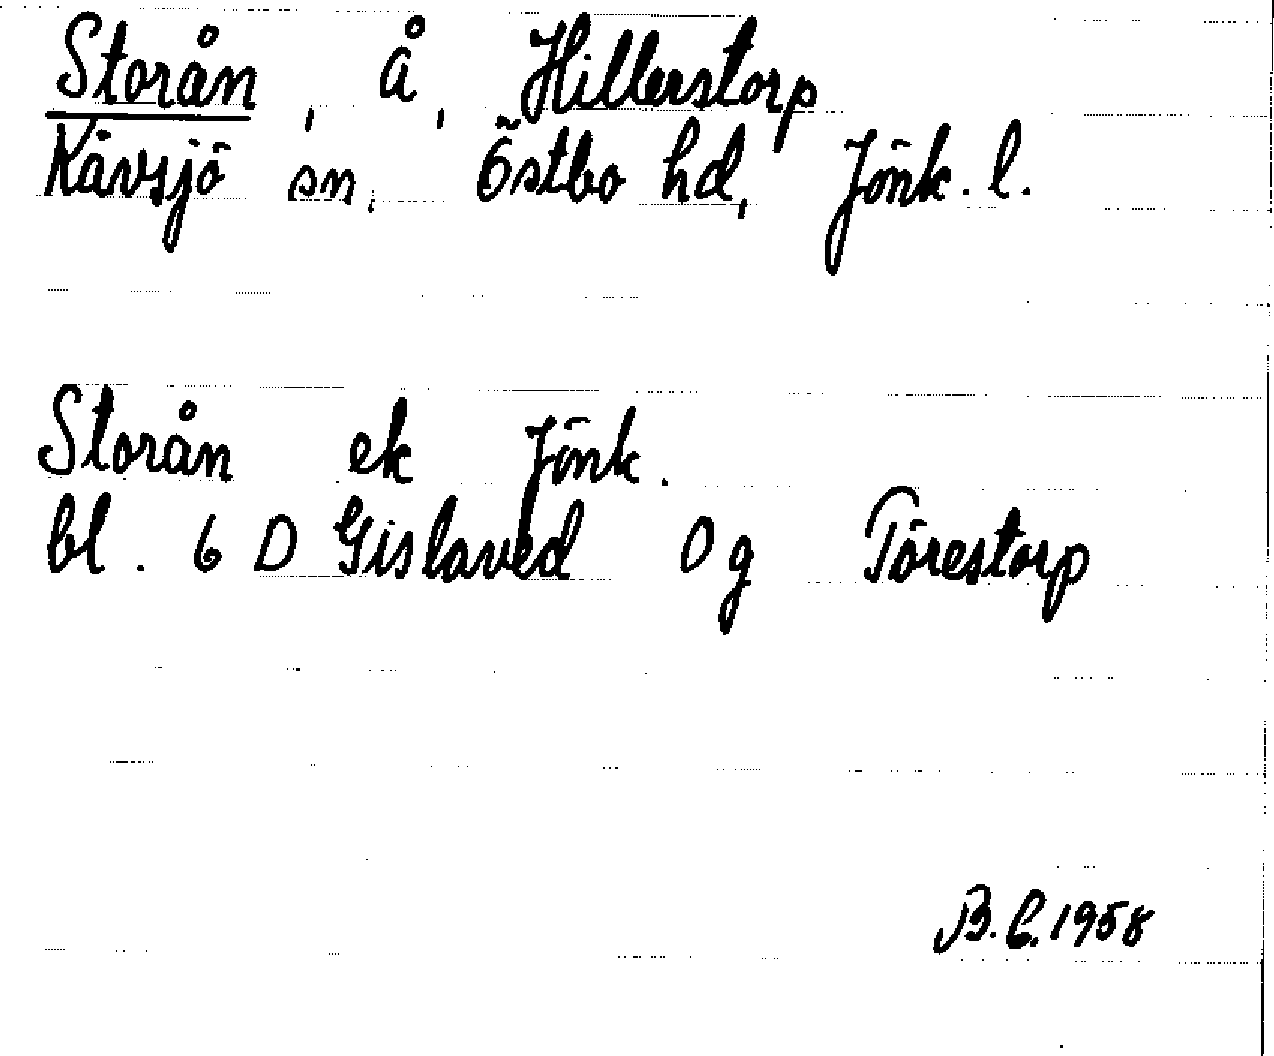 Storån, å, Hillerstorp
Kävsjö sn. Östbo hd, Jönk. l.
Storån ek Jönk.
bl. 6 D Gislaved 0 g Törestorp
B.C. 1958